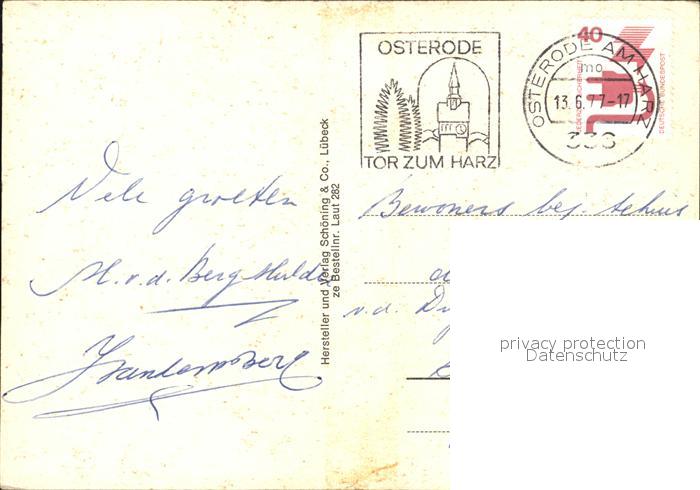 OSTERODE
TOR ZUM HARZ
OSTERODE AM HARZ
mo
13.6.77-17
336
40
JEDERZEIT SICHERHEIT
DEUTSCHE BUNDESPOST
Vele groeten
M.v.d. Berg-Mulder
Hersteller und Verlag Schöning & Co., Lübeck
ze Bestellnr. Laut 282
Bewoners bej.
v.d.
privacy protection
Datenschutz